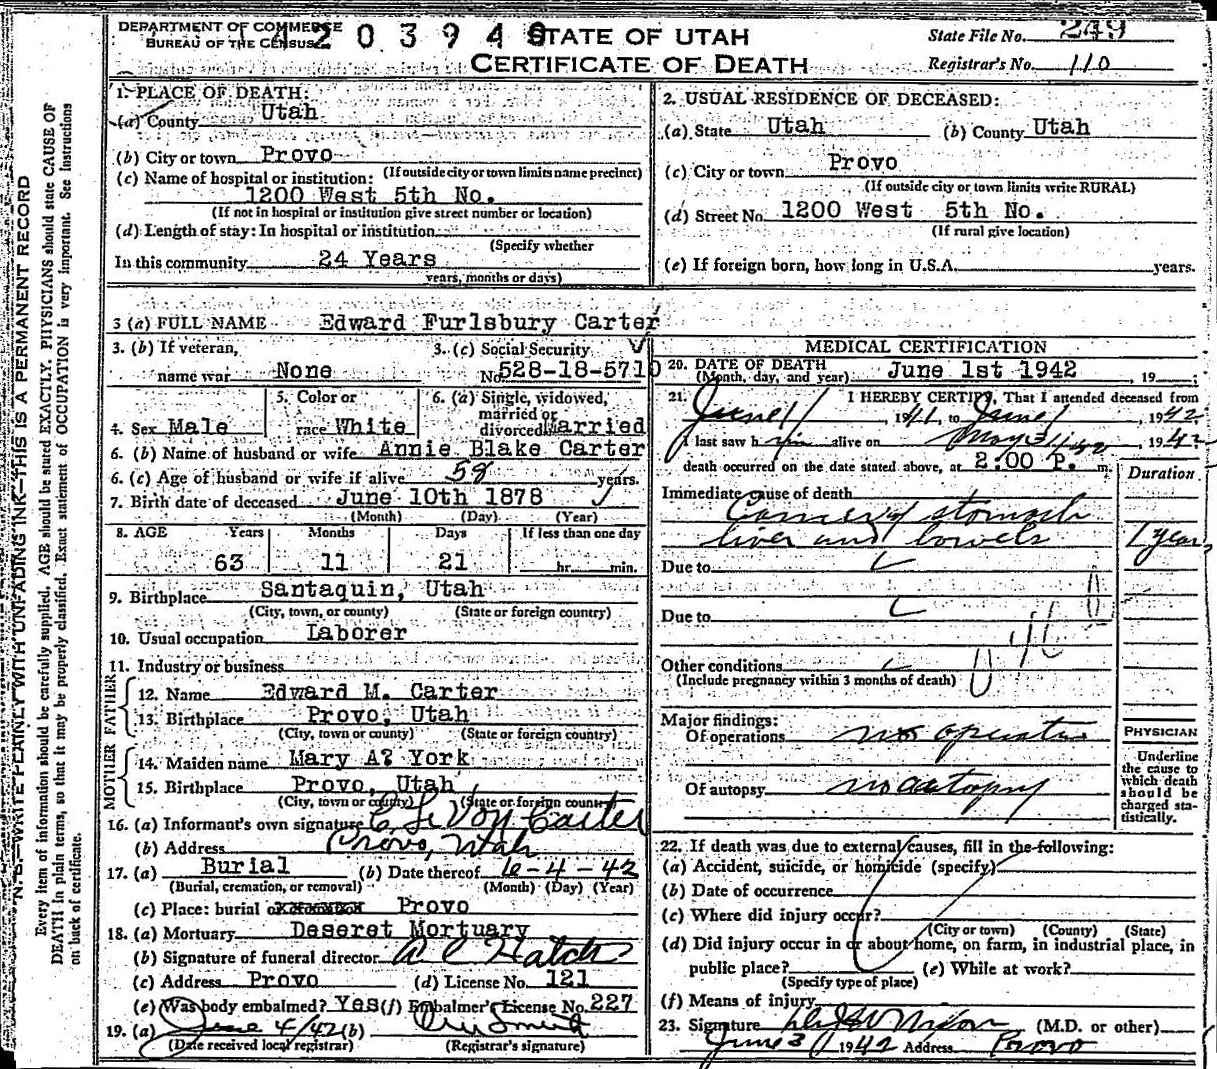 DEPARTMENT OF COMMERCE
BUREAU OF THE CENSUS
4 2 0 3 9 4 0
STATE OF UTAH
CERTIFICATE OF DEATH
State File No. 249
Registrar's No. 110
N. B.—WRITE PLAINLY WITH UNFADING INK—THIS IS A PERMANENT RECORD
Every item of information should be carefully supplied. AGE should be stated EXACTLY. PHYSICIANS should state CAUSE OF
DEATH in plain terms, so that it may be properly classified. Exact statement of OCCUPATION is very important. See Instructions
on back of certificate.
1. PLACE OF DEATH:
(a) County Utah
(b) City or town Provo
(If outside city or town limits name precinct)
(c) Name of hospital or institution:
1200 West 5th No.
(If not in hospital or institution give street number or location)
(d) Length of stay: In hospital or institution
(Specify whether
In this community 24 Years
years, months or days)
2. USUAL RESIDENCE OF DECEASED:
(a) State Utah (b) County Utah
(c) City or town Provo
(If outside city or town limits write RURAL)
(d) Street No. 1200 West 5th No.
(If rural give location)
(e) If foreign born, how long in U.S.A. years.
3 (a) FULL NAME Edward Furlsbury Carter
3. (b) If veteran,
name war None
3. (c) Social Security
No. 528-18-5710
4. Sex Male
5. Color or
race White
6. (a) Single, widowed,
married or
divorced Married
6. (b) Name of husband or wife Annie Blake Carter
6. (c) Age of husband or wife if alive 58 years.
7. Birth date of deceased June 10th 1878
(Month) (Day) (Year)
8. AGE Years Months Days If less than one day
63 11 21 hr. min.
9. Birthplace Santaquin, Utah
(City, town, or county) (State or foreign country)
10. Usual occupation Laborer
11. Industry or business
FATHER
12. Name Edward M. Carter
13. Birthplace Provo, Utah
(City, town or county) (State or foreign country)
MOTHER
14. Maiden name Mary A? York
15. Birthplace Provo, Utah
(City, town or county) (State or foreign country)
16. (a) Informant's own signature E. LeVon Carter
(b) Address Provo, Utah
17. (a) Burial (b) Date thereof 6-4-42
(Burial, cremation, or removal) (Month) (Day) (Year)
(c) Place: burial or Provo
18. (a) Mortuary Deseret Mortuary
(b) Signature of funeral director A C Hatch
(c) Address Provo (d) License No. 121
(e) Was body embalmed? Yes (f) Embalmer's License No. 227
19. (a) June 4/42 (b)
(Date received local registrar) (Registrar's signature)
MEDICAL CERTIFICATION
20. DATE OF DEATH
(Month, day, and year) June 1st 1942, 19
21. I HEREBY CERTIFY, That I attended deceased from
June 1, 1941, to June 1, 1942
I last saw him alive on May 31, 1942
death occurred on the date stated above, at 2:00 P. m.
Duration
Immediate cause of death
Cancer of stomach
liver and bowels 1 year
Due to
Due to
Other conditions
(Include pregnancy within 3 months of death)
Major findings:
Of operations no operation
Of autopsy no autopsy
PHYSICIAN
Underline
the cause to
which death
should be
charged sta-
tistically.
22. If death was due to external causes, fill in the following:
(a) Accident, suicide, or homicide (specify)
(b) Date of occurrence
(c) Where did injury occur?
(City or town) (County) (State)
(d) Did injury occur in or about home, on farm, in industrial place, in
public place? (e) While at work?
(Specify type of place)
(f) Means of injury
23. Signature Nixon (M.D. or other)
June 3/ 1942 Address Provo